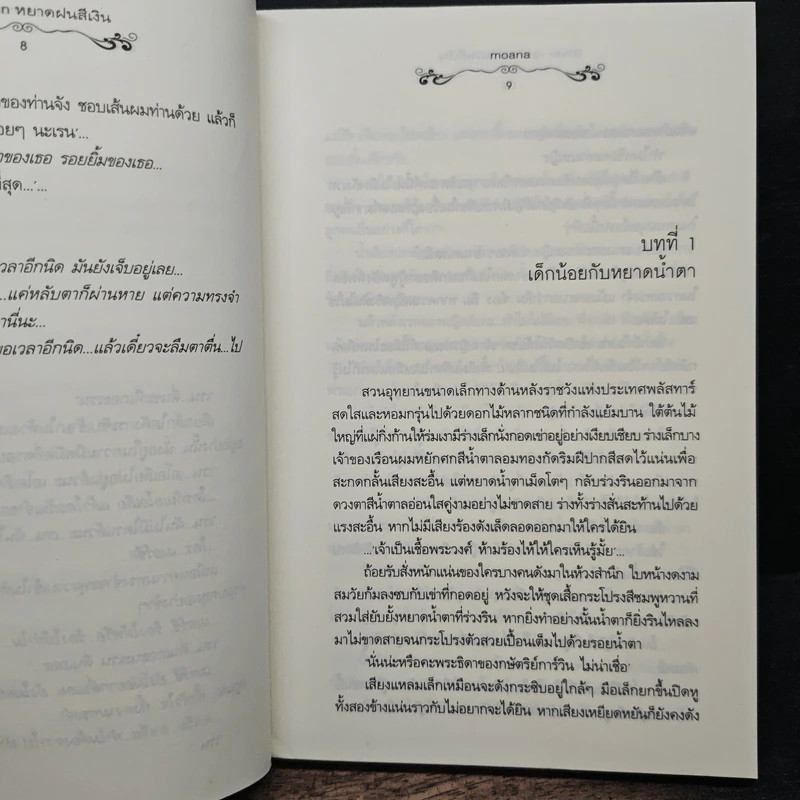 หยาดฝนสีเงิน
8
ของท่านจัง ชอบเส้นผมท่านด้วย แล้วก็
นะเรน’...
ของเธอ รอยยิ้มของเธอ...
ที่สุด...’...
เวลาอีกนิด มันยังเจ็บอยู่เลย...
...แค่หลับตาก็ผ่านหาย แต่ความทรงจำ
นี่นะ...
ขอเวลาอีกนิด...แล้วเดี๋ยวจะลืมตาตื่น...ไป
moana
9
บทที่ 1
เด็กน้อยกับหยาดน้ำตา
สวนอุทยานขนาดเล็กทางด้านหลังราชวังแห่งประเทศพลัสทาร์
สดใสและหอมกรุ่นไปด้วยดอกไม้หลากชนิดที่กำลังแย้มบาน ใต้ต้นไม้
ใหญ่ที่แผ่กิ่งก้านให้ร่มเงามีร่างเล็กนั่งกอดเข่าอยู่อย่างเงียบเชียบ ร่างเล็กบาง
เจ้าของเรือนผมหยักศกสีน้ำตาลอมทองกัดริมฝีปากสีสดไว้แน่นเพื่อ
สะกดกลั้นเสียงสะอื้น แต่หยาดน้ำตาเม็ดโตๆ กลับร่วงรินออกมาจาก
ดวงตาสีน้ำตาลอ่อนใสคู่งามอย่างไม่ขาดสาย ร่างทั้งร่างสั่นสะท้านไปด้วย
แรงสะอื้น หากไม่มีเสียงร้องดังเล็ดลอดออกมาให้ใครได้ยิน
...‘เจ้าเป็นเชื้อพระวงศ์ ห้ามร้องไห้ให้ใครเห็นรู้มั้ย’...
ถ้อยรับสั่งหนักแน่นของใครบางคนดังมาในห้วงสำนึก ใบหน้างดงาม
สมวัยก้มลงซบกับเข่าที่กอดอยู่ หวังจะให้ชุดเสื้อกระโปรงสีชมพูหวานที่
สวมใส่ยับยั้งหยาดน้ำตาที่ร่วงริน หากยิ่งทำอย่างนั้นน้ำตาก็ยิ่งรินไหลลง
มาไม่ขาดสายจนกระโปรงตัวสวยเปื้อนเต็มไปด้วยรอยน้ำตา
‘นั่นน่ะหรือคะพระธิดาของกษัตริย์การ์วิน ไม่น่าเชื่อ’
เสียงแหลมเล็กเหมือนจะดังกระซิบอยู่ใกล้ๆ มือเล็กยกขึ้นปิดหู
ทั้งสองข้างแน่นราวกับไม่อยากจะได้ยิน หากเสียงเหยียดหยันก็ยังคงดัง